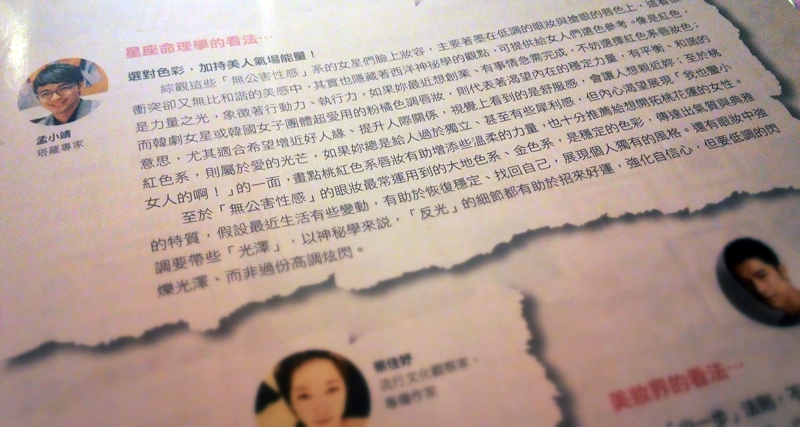 星座命理學的看法…
選對色彩，加持美人氣場能量！
孟小靖
塔羅專家
綜觀這些「無公害性感」系的女星們臉上妝容，主要著墨在低調的眼妝與搶眼的唇色上，這看似
衝突卻又無比和諧的美感中，其實也隱藏著西洋神祕學的觀點，可提供給女人們選色參考。像是紅色，
是力量之光，象徵著行動力、執行力，如果妳最近想創業、有事情急需完成，不妨選擇紅色系唇妝色；
而韓劇女星或韓國女子團體超愛用的粉橘色調唇妝，則代表著渴望內在的穩定力量，有平衡、和諧的
意思，尤其適合希望增近好人緣、提升人際關係，視覺上看到的是舒服感，會讓人想親近妳；至於桃
紅色系，則屬於愛的光芒，如果妳總是給人過於獨立、甚至有些犀利感，但內心渴望展現「我也是小
女人的啊！」的一面，畫點桃紅色系唇妝有助增添些溫柔的力量，也十分推薦給想開拓桃花運的女性。
至於「無公害性感」的眼妝最常運用到的大地色系、金色系，是穩定的色彩，傳達出氣質與典雅
的特質，假設最近生活有些變動，有助於恢復穩定、找回自己，展現個人獨有的風格。還有眼妝中強
調要帶些「光澤」，以神秘學來說，「反光」的細節都有助於招來好運，強化自信心，但要低調的閃
爍光澤、而非過份高調炫閃。
蔡佳妤
流行文化觀察家、
專欄作家
美妝界的看法…